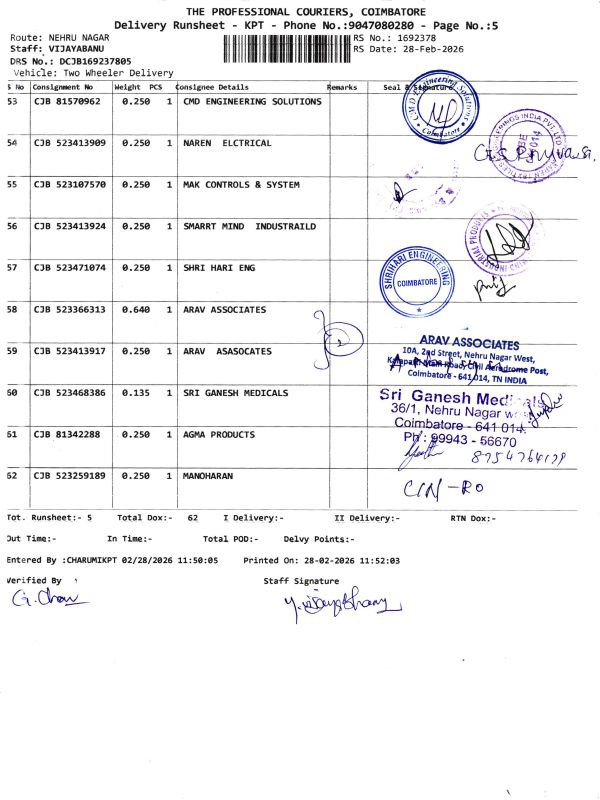 THE PROFESSIONAL COURIERS, COIMBATORE
Delivery Runsheet - KPT - Phone No.:9047080280 - Page No.:5
Route: NEHRU NAGAR RS No.: 1692378
Staff: VIJAYABANU RS Date: 28-Feb-2026
DRS No.: DCJB169237805
Vehicle: Two Wheeler Delivery
S No Consignment No Weight PCS Consignee Details Remarks Seal & Signature
53 CJB 81570962 0.250 1 CMD ENGINEERING SOLUTIONS
CMD Engineering Solutions
Coimbatore
54 CJB 523413909 0.250 1 NAREN ELCTRICAL
55 CJB 523107570 0.250 1 MAK CONTROLS & SYSTEM
56 CJB 523413924 0.250 1 SMARRT MIND INDUSTRAILD
57 CJB 523471074 0.250 1 SHRI HARI ENG
SHRIHARI ENGINEERING
COIMBATORE
58 CJB 523366313 0.640 1 ARAV ASSOCIATES
59 CJB 523413917 0.250 1 ARAV ASASOCATES
ARAV ASSOCIATES
10A, 2nd Street, Nehru Nagar West,
Kalapatti Main Road, Civil Aerodrome Post,
Coimbatore - 641 014, TN INDIA
60 CJB 523468386 0.135 1 SRI GANESH MEDICALS
Sri Ganesh Medicals
36/1, Nehru Nagar west
Coimbatore - 641 014.
Ph : 99943 - 56670
61 CJB 81342288 0.250 1 AGMA PRODUCTS
8754764179
62 CJB 523259189 0.250 1 MANOHARAN
C/N - RO
Tot. Runsheet:- 5 Total Dox:- 62 I Delivery:- II Delivery:- RTN Dox:-
Out Time:- In Time:- Total POD:- Delvy Points:-
Entered By :CHARUMIKPT 02/28/2026 11:50:05 Printed On: 28-02-2026 11:52:03
Verified By Staff Signature